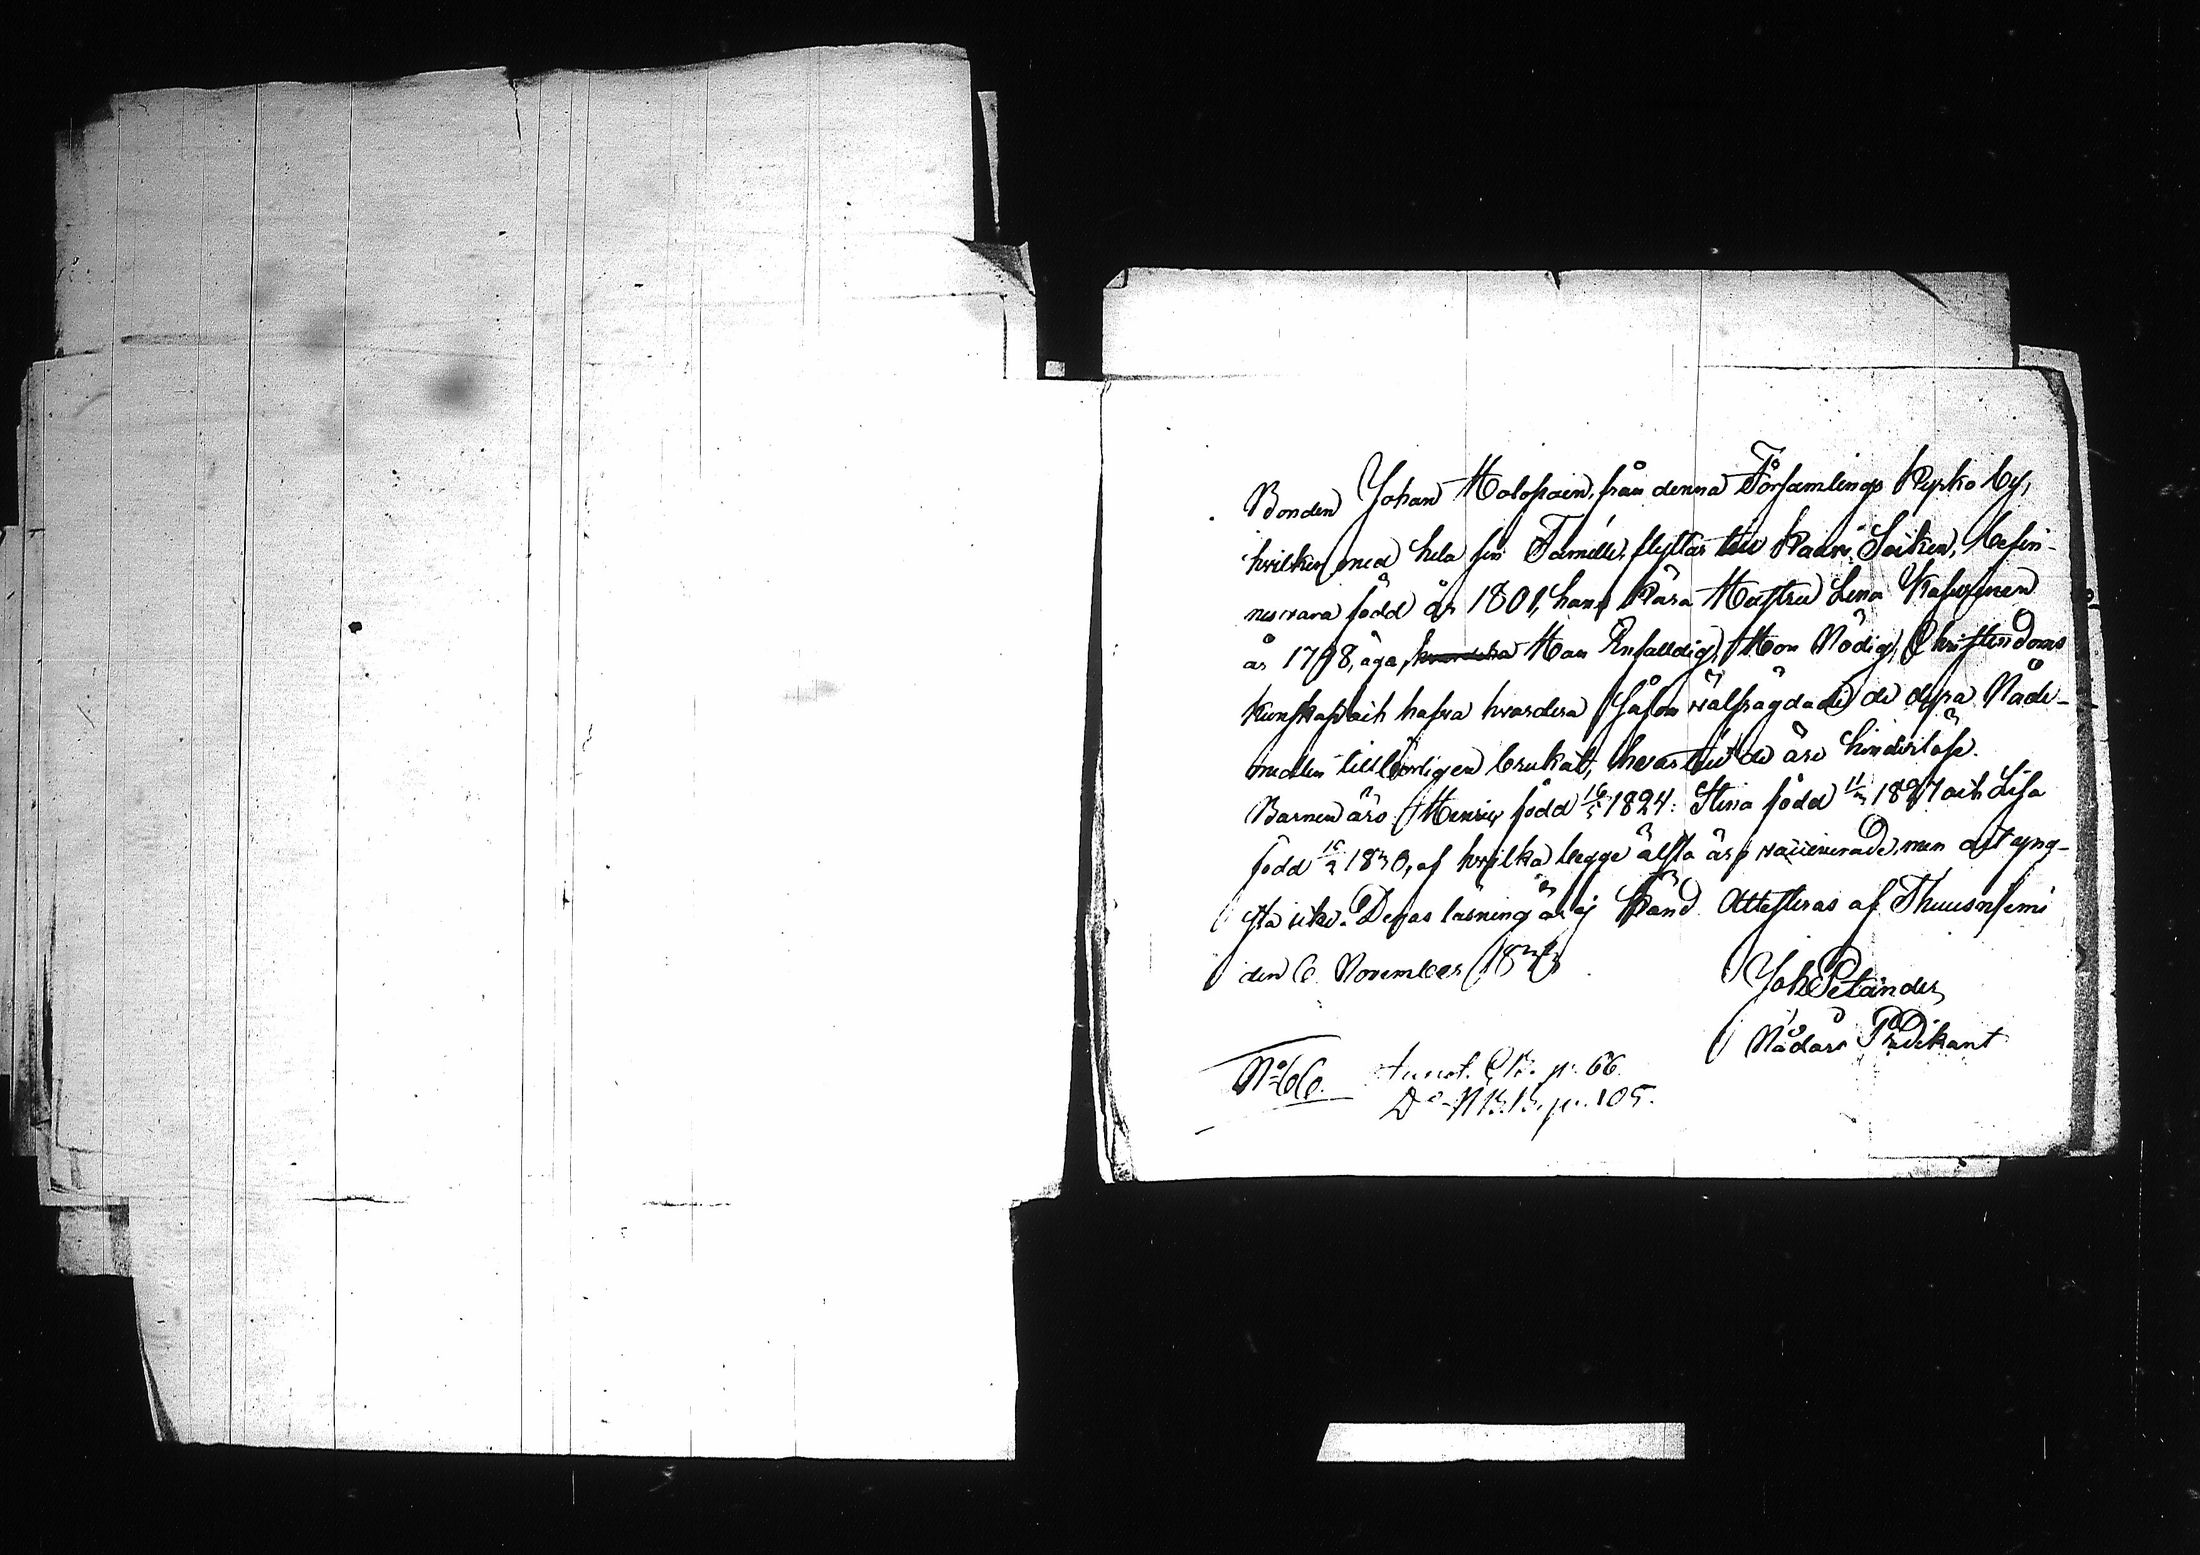 Bonden Johan Holopain, från denna Församlings Kyrko by,
hvilken med hela sin Famille, flyttar till Kaavi Socken, befin-
nes vara född år 1801, hans kära Hustru Lena Kasurinen
år 1798, äga, Han Enfalldig, Hon Nödig, Christendoms
kunskap och hafva hvardera såsom välfrägdade de dyra Nåde-
medlen tillbörligen brukat, hvartill de äro hinderlöse.
Barnen äro Henric född 16/5 1824. Stina född 1827 och Lisa
född 1830, af hvilka begge älsta äro vaccinerade, men det yng-
sta icke. Deras läsning är ej känd. Attesteras af Thuusniemi
den 6 November 1833
Joh Petander
Nådårs Predikant
No 66. Annot. C.B. p. 66.
Do N.B.B. p. 105.